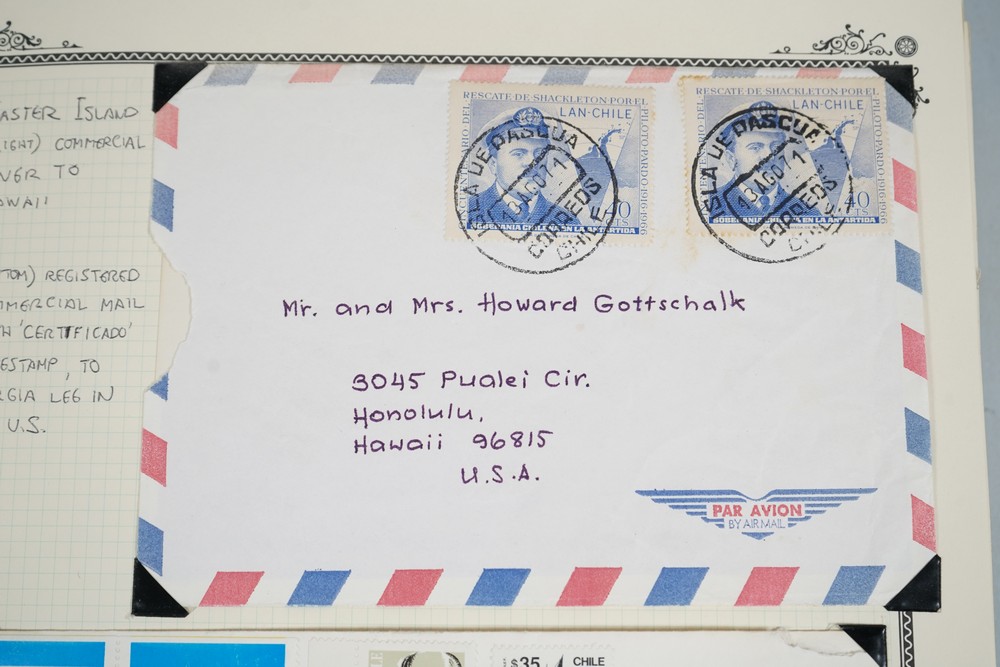 ASTER ISLAND
IGHT) COMMERCIAL
VER TO
WAII
TOM) REGISTERED
MMERCIAL MAIL
'CERTIFICADO'
ESTAMP, TO
RGIA LEG IN
U.S.
RESCATE·DE·SHACKLETON·POR·EL
PILOTO·PARDO·1916-1966
LAN-CHILE
40
CTS.
SOBERANIA CHILENA EN LA ANTARTIDA
ISLA DE PASCUA
13 AGO 71
CORREOS
CHILE
RESCATE·DE·SHACKLETON·POR·EL
PILOTO·PARDO·1916-1966
LAN-CHILE
40
CTS.
SOBERANIA CHILENA EN LA ANTARTIDA
ISLA DE PASCUA
13 AGO 71
CORREOS
CHILE
Mr. and Mrs. Howard Gottschalk
3045 Pualei Cir.
Honolulu,
Hawaii 96815
U.S.A.
PAR AVION
BY AIR MAIL
$35
CHILE